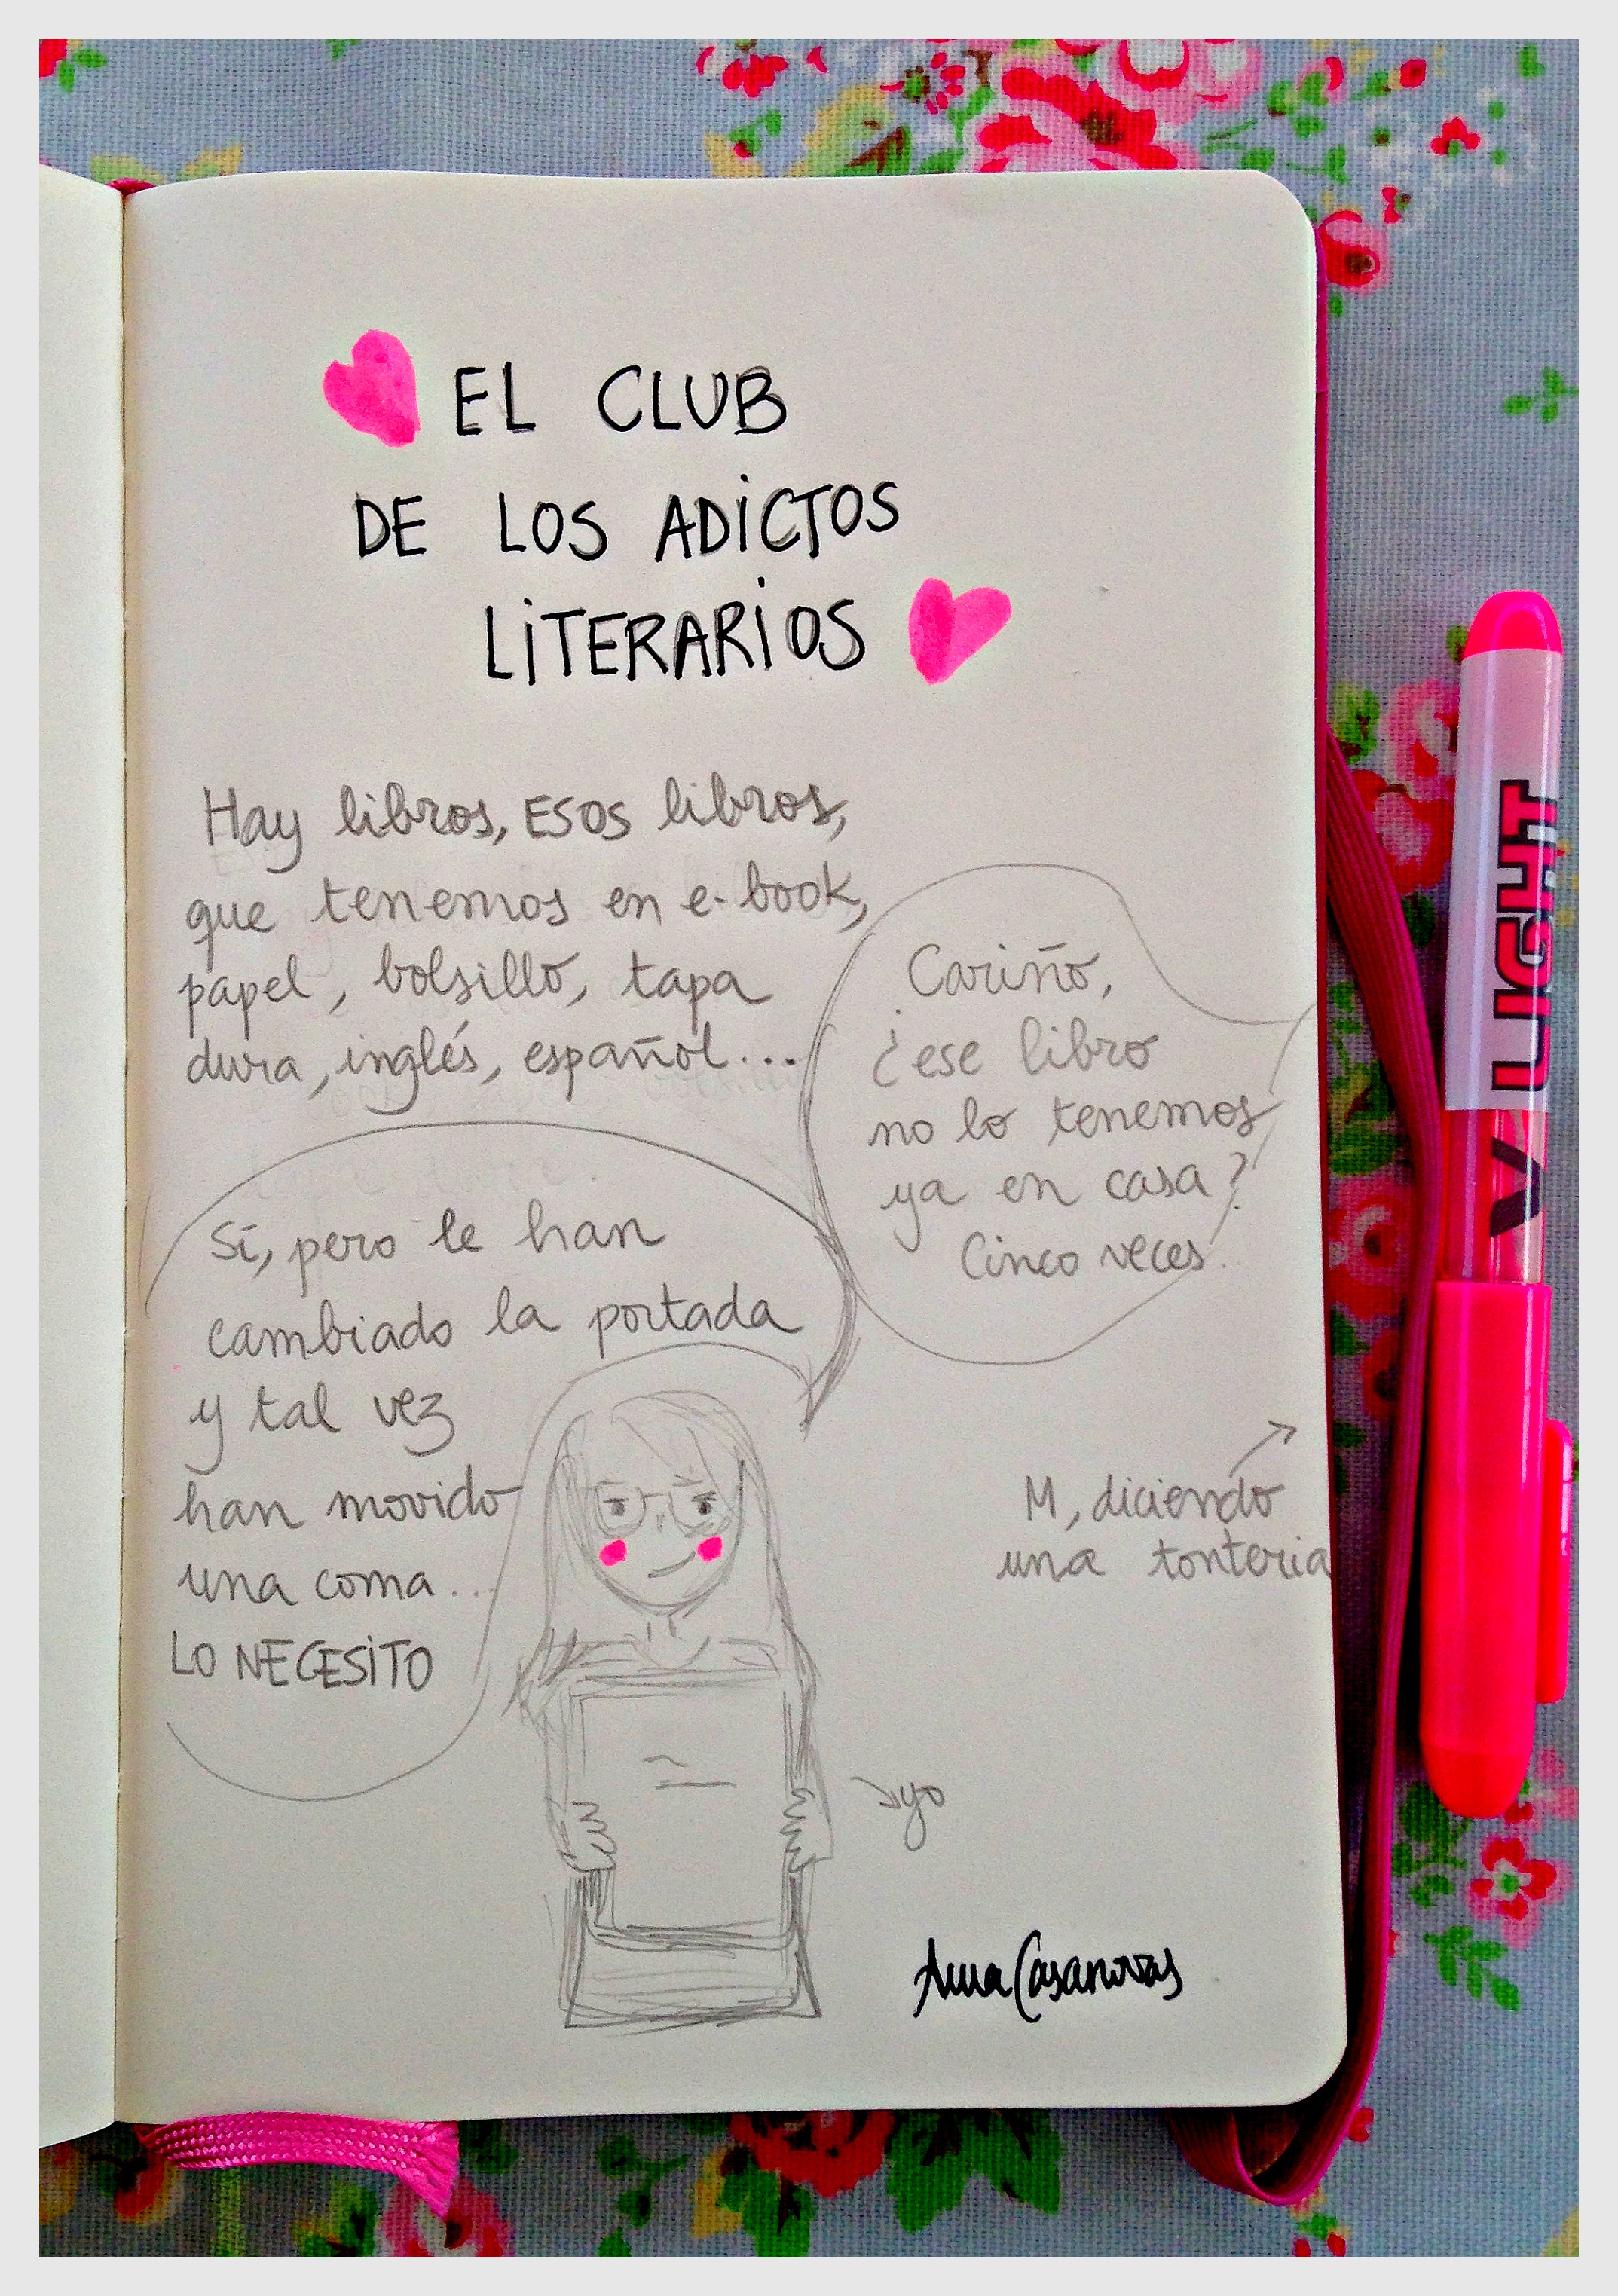 EL CLUB
DE LOS ADICTOS
LITERARIOS
Hay libros, ESOS libros,
que tenemos en e-book,
papel, bolsillo, tapa
dura, inglés, español...
Cariño,
¿ese libro
no lo tenemos
ya en casa?
Cinco veces.
Sí, pero le han
cambiado la portada
y tal vez
han movido
una coma...
LO NECESITO
M, diciendo
una tonteria
yo
Anna Casanovas
V LIGHT